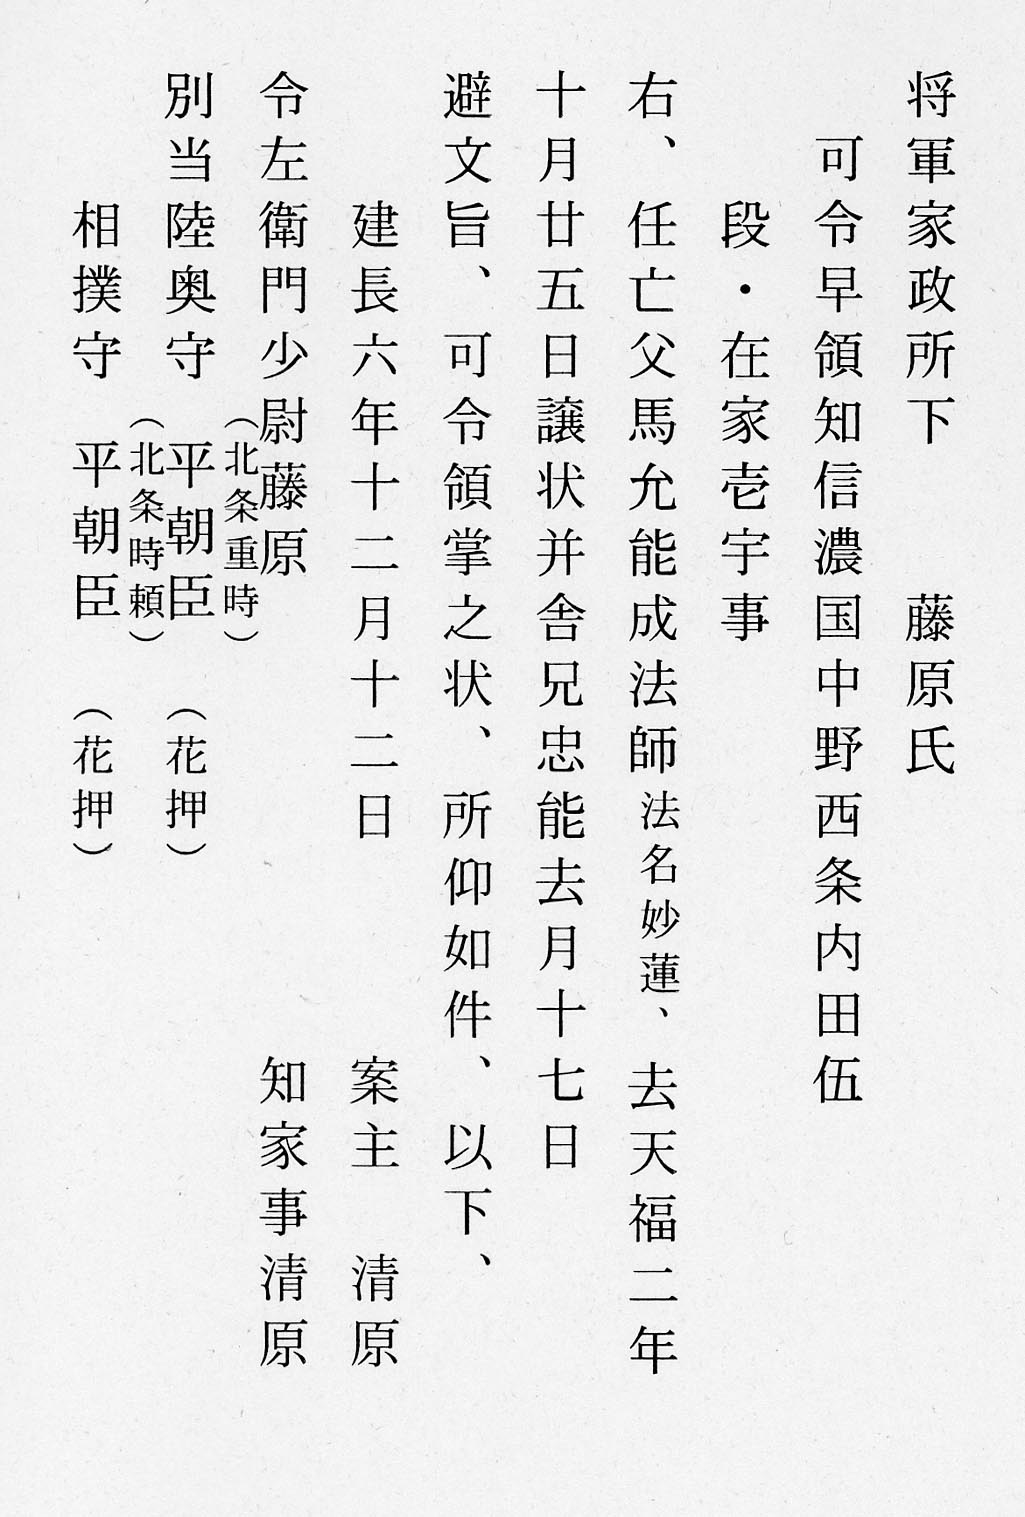 将軍家政所下　　藤原氏
可令早領知信濃国中野西条内田伍
段・在家壱宇事
右、任亡父馬允能成法師法名妙蓮、去天福二年
十月廿五日譲状并舎兄忠能去月十七日
避文旨、可令領掌之状、所仰如件、以下、
建長六年十二月十二日　　　案主　清原
令左衛門少尉藤原　　　　　知家事清原
（北条重時）
別当陸奥守　平朝臣　（花押）
（北条時頼）
相撲守　平朝臣　（花押）